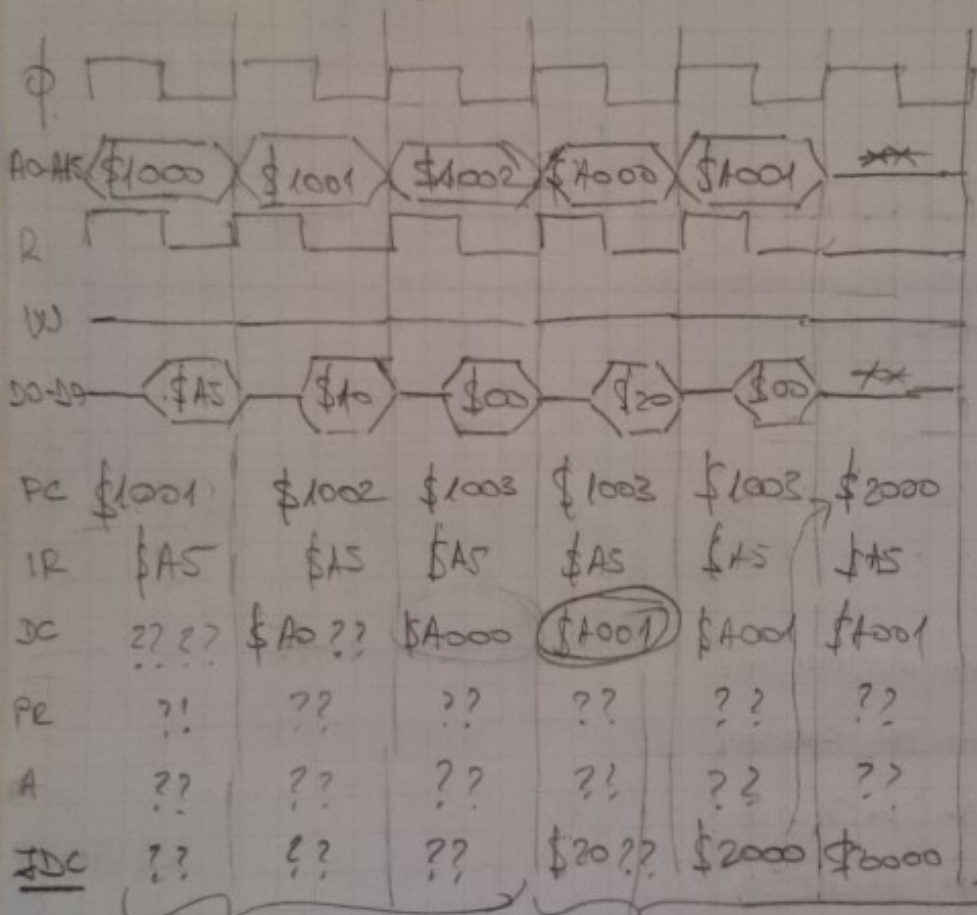 ϕ
A0-A15 $1000 $1001 $1002 $A000 $A001 xx
R
W
D0-D7 $A5 $A0 $00 $20 $00 xx
PC $1001 $1002 $1003 $1003 $1003 $2000
IR $A5 $A5 $A5 $A5 $A5 $A5
DC ???? $A0?? $A000 $A001 $A001 $A001
PR ?! ?? ?? ?? ?? ??
A ?? ?? ?? ?? ?? ??
IDC ?? ?? ?? $20?? $2000 $0000